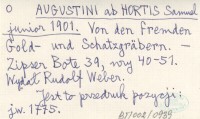 O AUGUSTINI ab HORTIS Samuel
junior 1901. Von den fremden
Gold- und Schatzgräbern. –
Zipser Bote 39, nry 40-51.
Wydał Rudolf Weber.
Jest to przedruk pozycji:
jw. 1775.
BT/002/0939